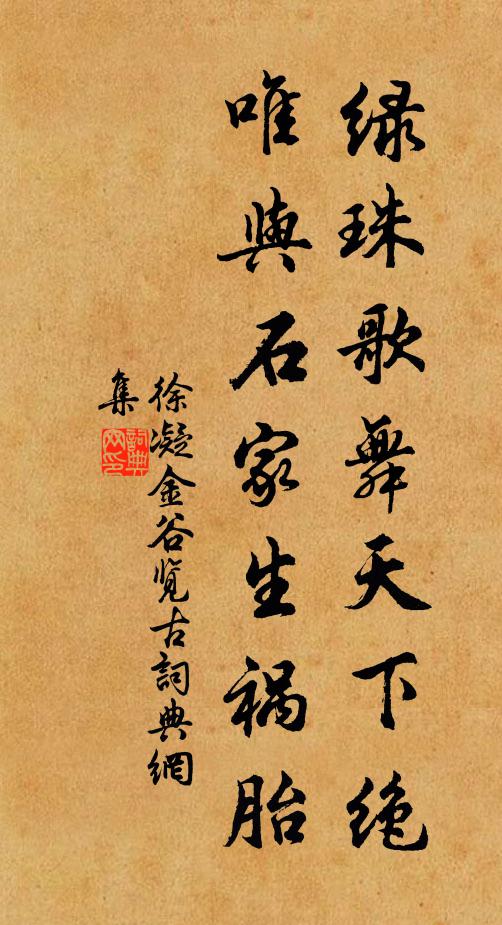 绿珠歌舞天下绝
唯與石家生祸胎
徐凝金谷览古詞典網
集
詞典